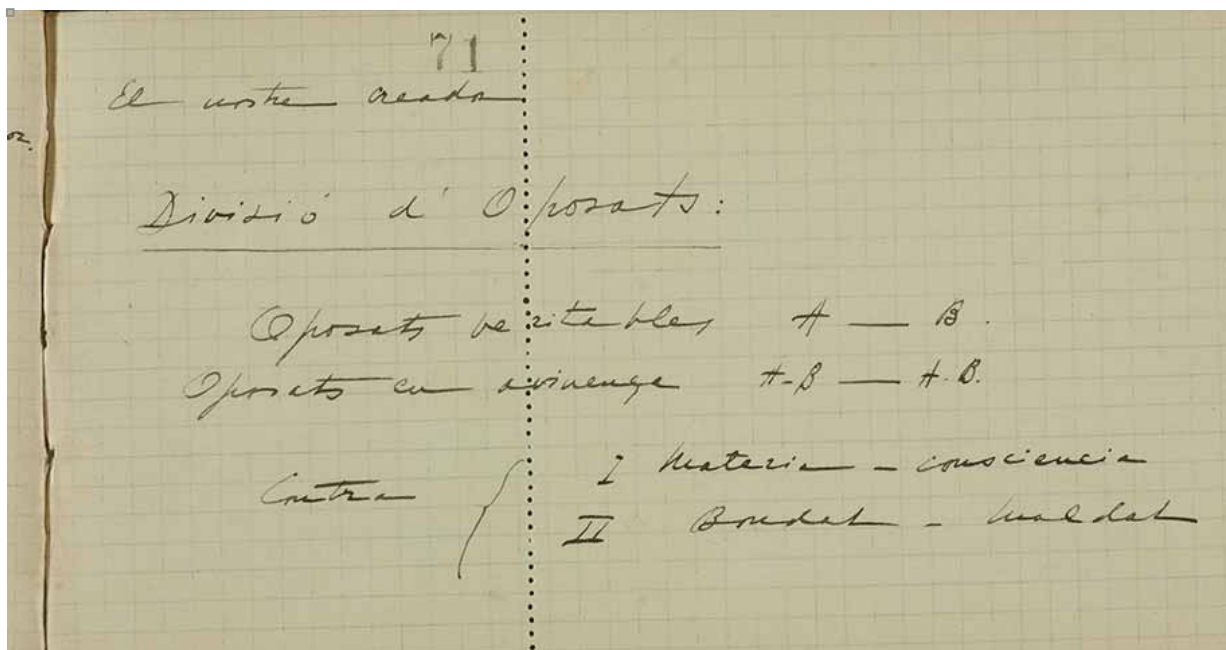 71
oz.
El nostre creador
Divisió d'Oposats:
Oposats veritables A — B.
Oposats en avinença A-B — A.B.
Contra { I Materia - consciencia
II Bondat - maldat